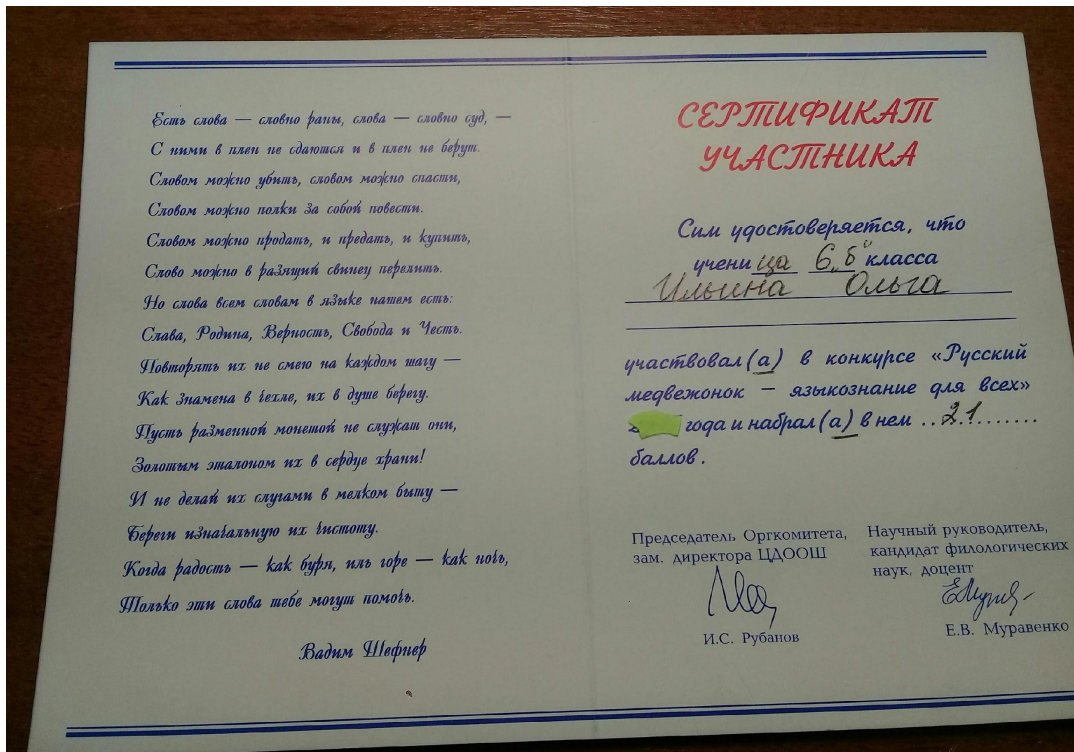 Есть слова — словно раны, слова — словно суд, —
С ними в плен не сдаются и в плен не берут.
Словом можно убить, словом можно спасти,
Словом можно полки за собой повести.
Словом можно продать, и предать, и купить,
Слово можно в разящий свинец перелить.
Но слова всем словам в языке нашем есть:
Слава, Родина, Верность, Свобода и Честь.
Повторять их не смею на каждом шагу —
Как знамена в чехле, их в душе берегу.
Пусть разменной монетой не служат они,
Золотым эталоном их в сердце храни!
И не делай их слугами в мелком быту —
Береги изначальную их чистоту.
Когда радость — как буря, иль горе — как ночь,
Только эти слова тебе могут помочь.
Вадим Шефнер
СЕРТИФИКАТ
УЧАСТНИКА
Сим удостоверяется, что
ученица 6 „б“ класса
Ильина Ольга
участвовал(а) в конкурсе «Русский
медвежонок — языкознание для всех»
года и набрал(а) в нем ..21.......
баллов.
Председатель Оргкомитета,
зам. директора ЦДООШ
И.С. Рубанов
Научный руководитель,
кандидат филологических
наук, доцент
Е.В. Муравенко